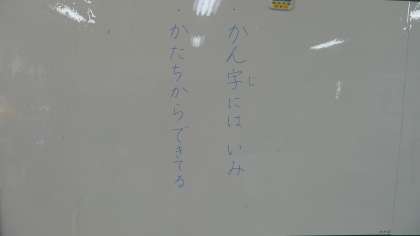 ・かん字には いみ
・かたちからできてる